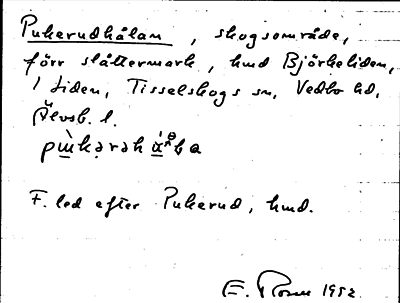 Pukerudhålan, skogsområde,
förr slåttermark, hmd Björkeliden,
1 Liden, Tisselskogs sn, Vedbo hd,
Älvsb. l.
F. led efter Pukerud, hmd.
E. Rosen 1952